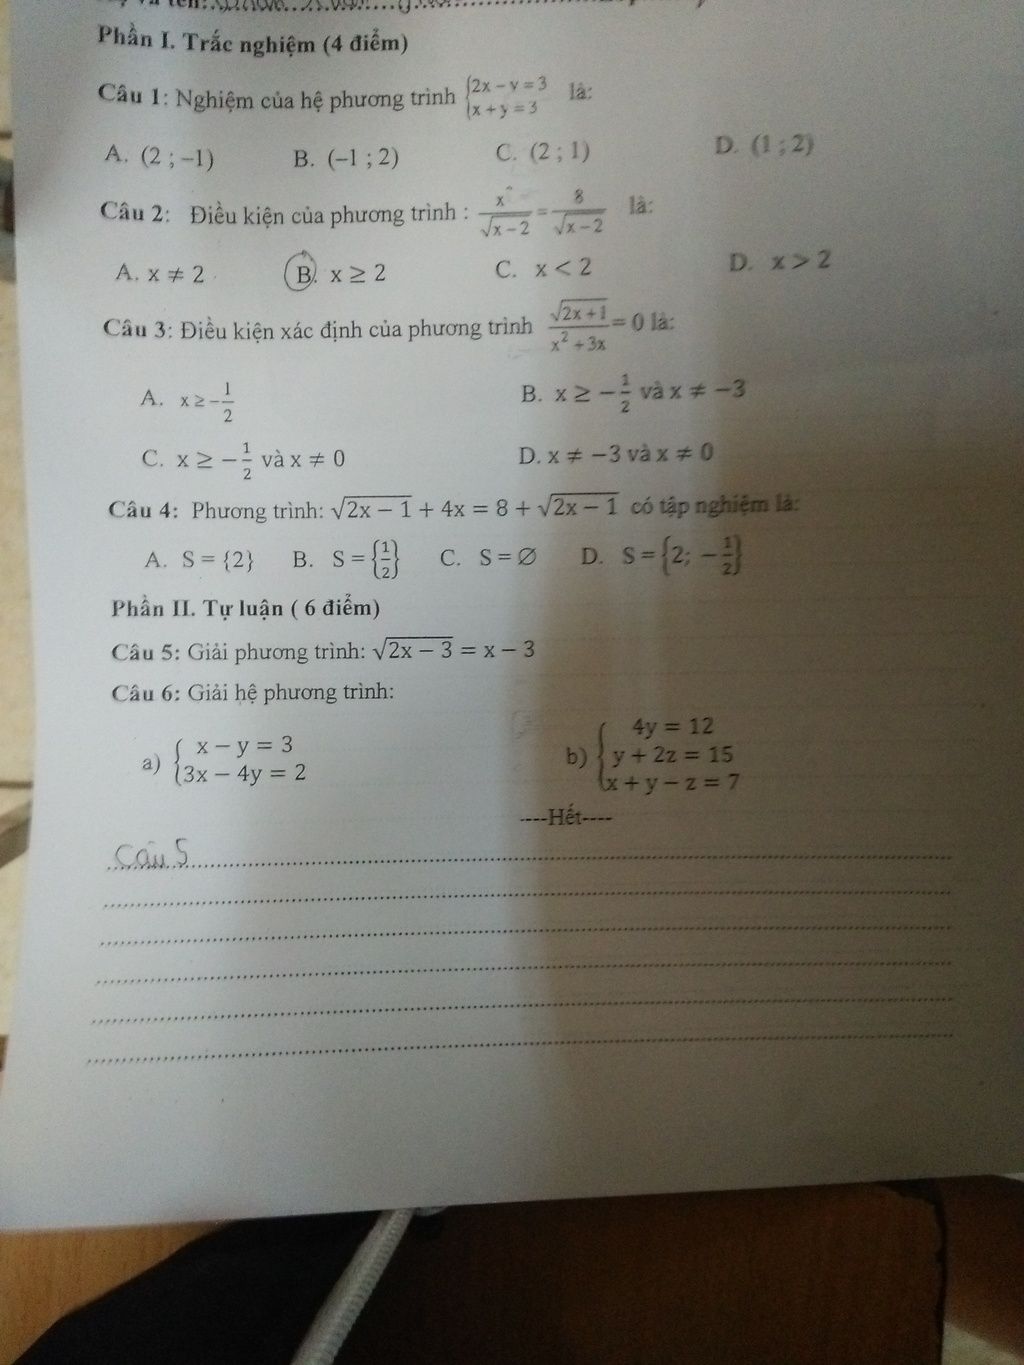 Phần I. Trắc nghiệm (4 điểm)
Câu 1: Nghiệm của hệ phương trình {2x − y = 3 x + y = 3 là:
A. (2 ; −1) B. (−1 ; 2) C. (2 ; 1) D. (1 ; 2)
Câu 2: Điều kiện của phương trình : x²/√(x − 2) = 8/√(x − 2) là:
A. x ≠ 2 B. x ≥ 2 C. x < 2 D. x > 2
Câu 3: Điều kiện xác định của phương trình √(2x + 1)/(x² + 3x) = 0 là:
A. x ≥ −1/2 B. x ≥ −1/2 và x ≠ −3
C. x ≥ −1/2 và x ≠ 0 D. x ≠ −3 và x ≠ 0
Câu 4: Phương trình: √(2x − 1) + 4x = 8 + √(2x − 1) có tập nghiệm là:
A. S = {2} B. S = {1/2} C. S = ∅ D. S = {2; −1/2}
Phần II. Tự luận ( 6 điểm)
Câu 5: Giải phương trình: √(2x − 3) = x − 3
Câu 6: Giải hệ phương trình:
a) {x − y = 3 3x − 4y = 2 b) {4y = 12 y + 2z = 15 x + y − z = 7
----Hết----
Câu 5